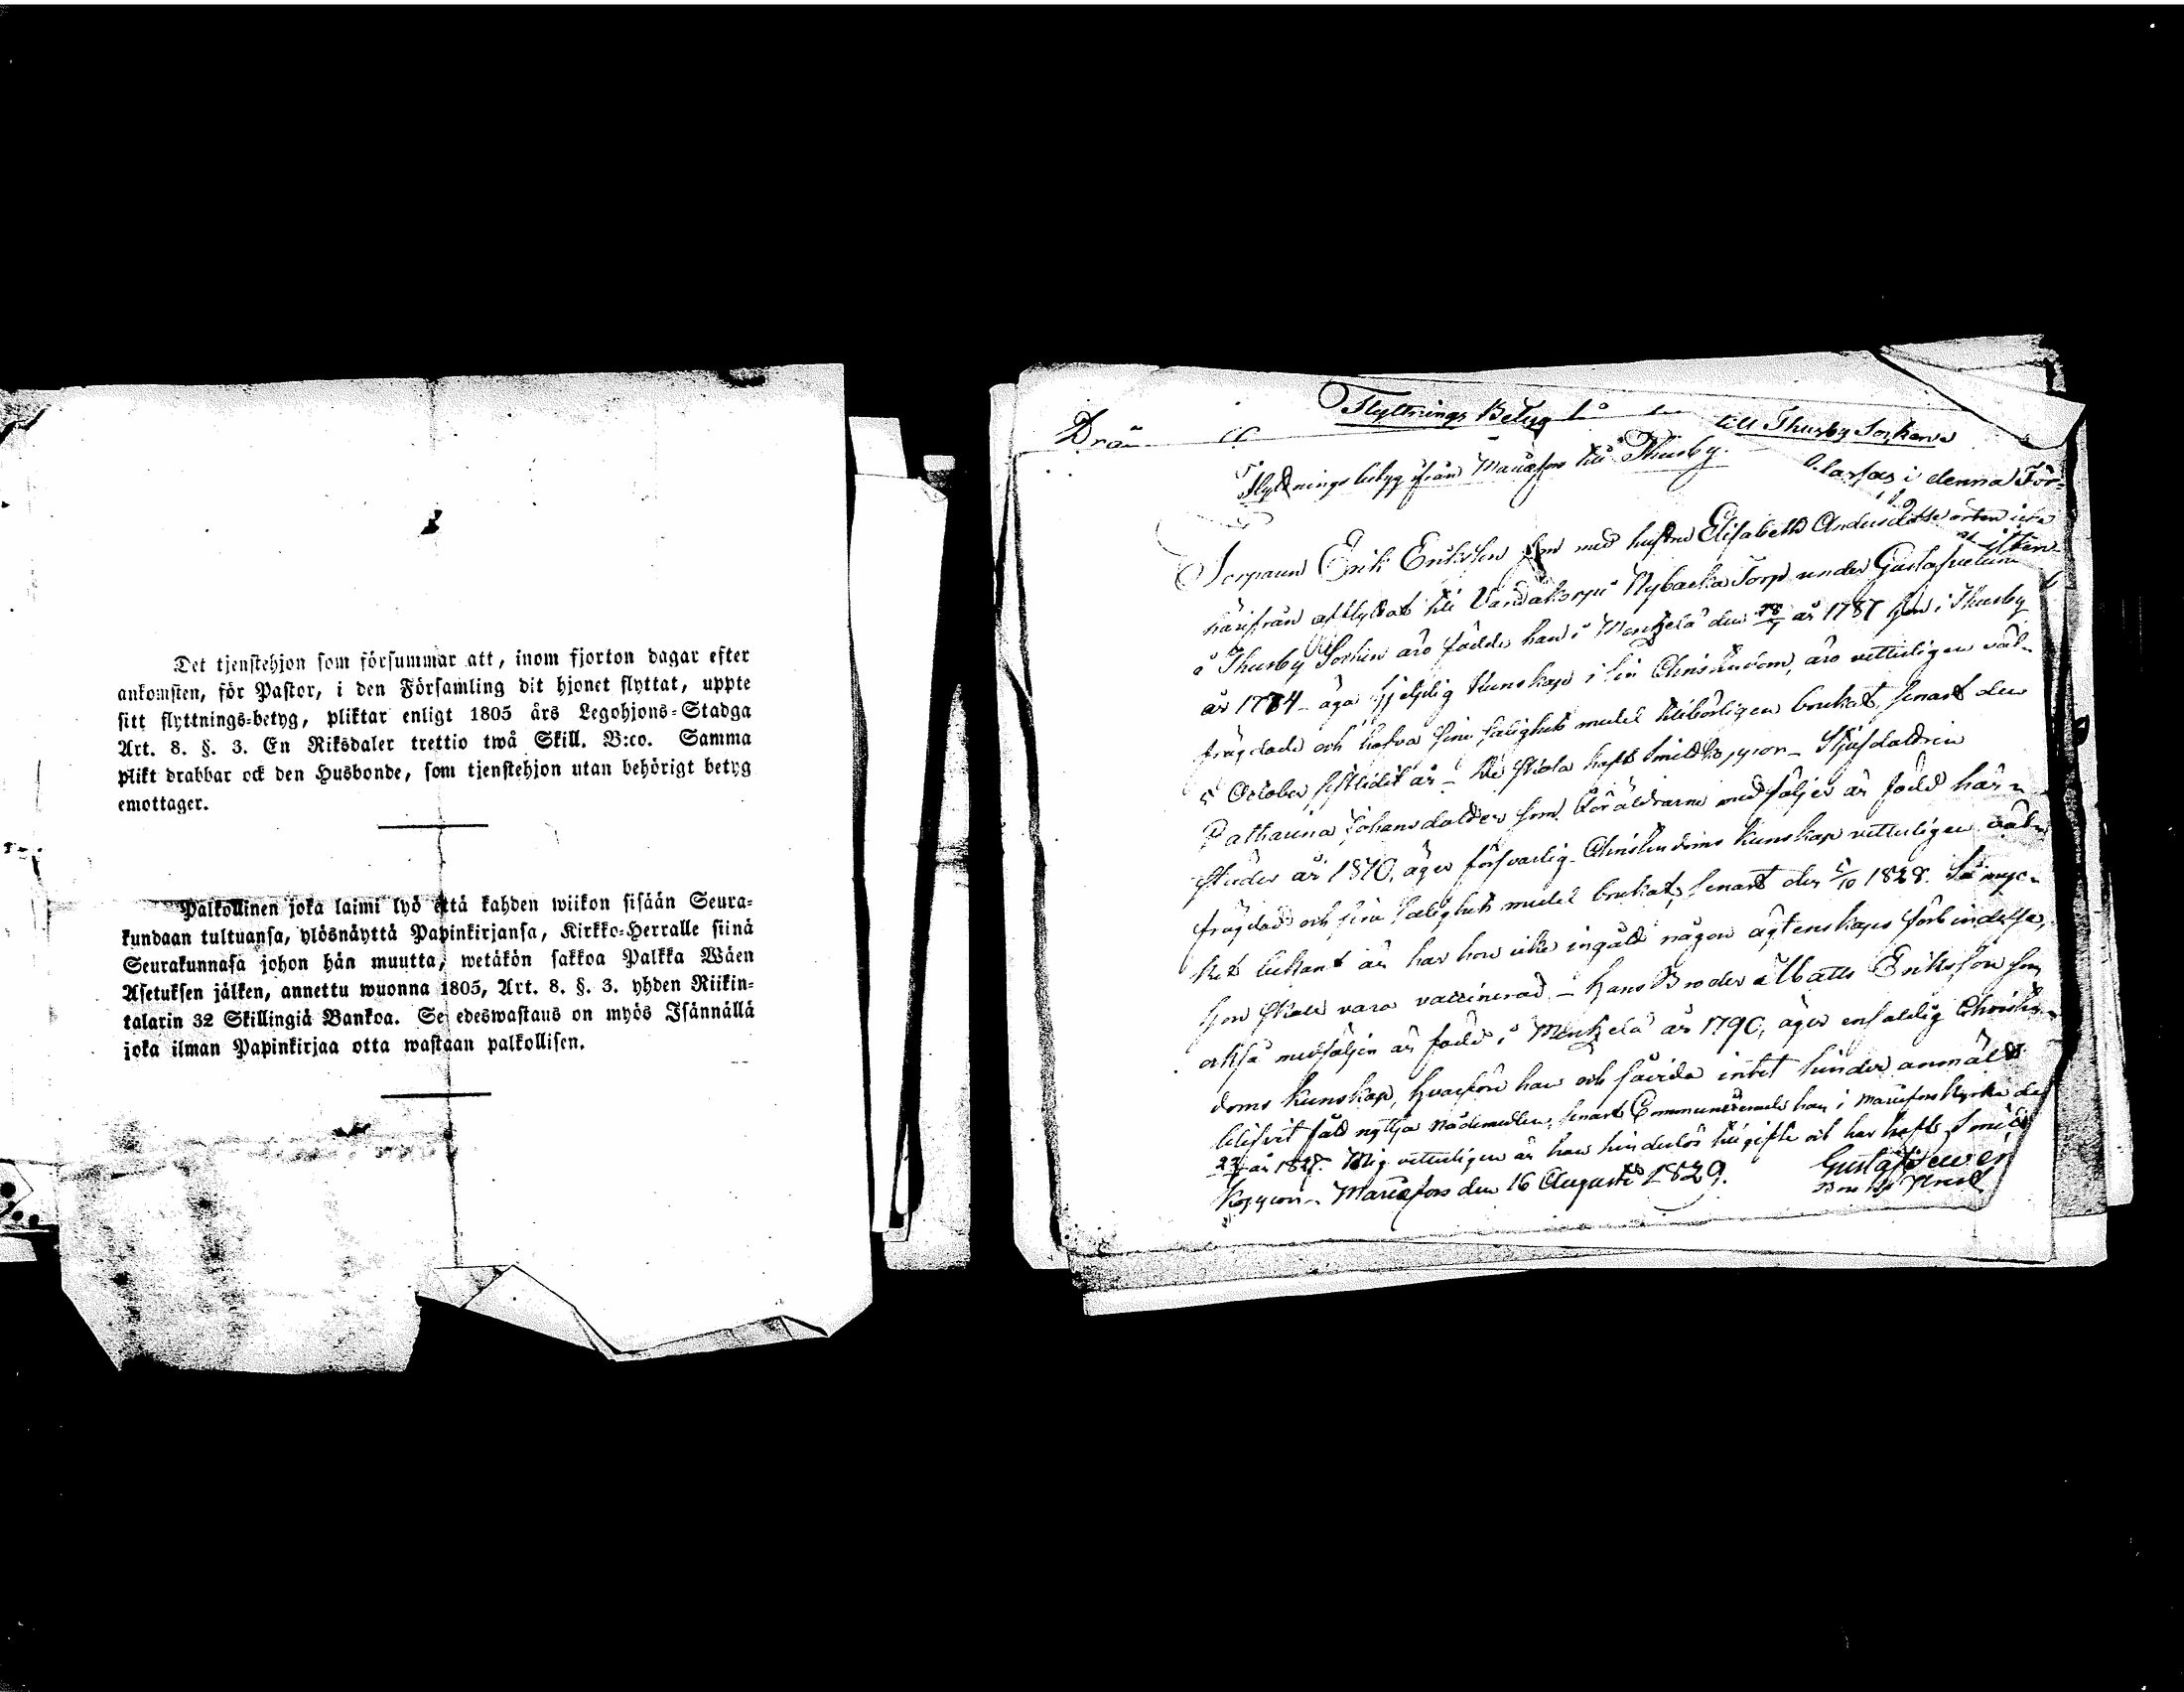 Det tjenstehjon som försummar att, inom fjorton dagar efter
ankomsten, för Pastor, i den Församling dit hjonet flyttat, uppte
sitt flyttnings-betyg, pliktar enligt 1805 års Legohjons-Stadga
Art. 8. §. 3. En Riksdaler trettio twå Skill. B:co. Samma
plikt drabbar ock den Husbonde, som tjenstehjon utan behörigt betyg
emottager.
Palkollinen joka laimi lyö että kahden wiikon sisään Seura-
kundaan tultuansa, ylösnäyttä Papinkirjansa, Kirkko-Herralle siinä
Seurakunnasa johon hän muutta, wetäkön sakkoa Palkka Wäen
Asetuksen jälken, annettu wuonna 1805, Art. 8. §. 3. yhden Riikin-
talarin 32 Skillingiä Bankoa. Se edeswastaus on myös Isännällä
joka ilman Papinkirjaa otta wastaan palkollisen.
Flyttnings Betyg
till Thusby Socken
Drän
Flyttnings betyg ifrån Mariæfors till Thusby.
i denna För-
Torparen Erik Eriksson med hustru Elisabeth Andersdotter
härifrån afflyttat till Nybacka Torp under
Thusby Sockn äro födde han i år 1787 hon i Thusby
år 1784 äga hjelplig kunskap i sin Christendom, äro vetterligen väl-
frägdade och hafva sine salighets medel tillbörligen brukat, senast den
5 October sistledit år – De skola haft Smittkoppor – Stjufdottren
Catharina Johansdotter som Föräldrarne medföljer är född här-
städes år 1810, äger försvarlig Christendoms kunskap vetterligen väl-
frägdad och sine Salighets medel brukat, senast den 5/10 1828. Så myc-
ket bekant är har hon icke ingått någon ägtenskaps förbindelse,
hon skall vara vaccinerad – Hans Broder Matts Eriksson som
också medföljer är född i år 1790, äger enfaldig Christen-
doms kunskap, hvarföre han och intet hinder anmält
blifvit fått nyttja nådemedlen, senast Communicerade han i Mariæfors Kyrka den
år 1828. Mig vetterligen är han hinderlös till gifte och har haft Smitt
koppor – Mariæfors den 16 Augusti 1829.
Gustaf